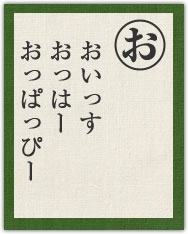 お
おいっす
おっはー
おっぱっぴー